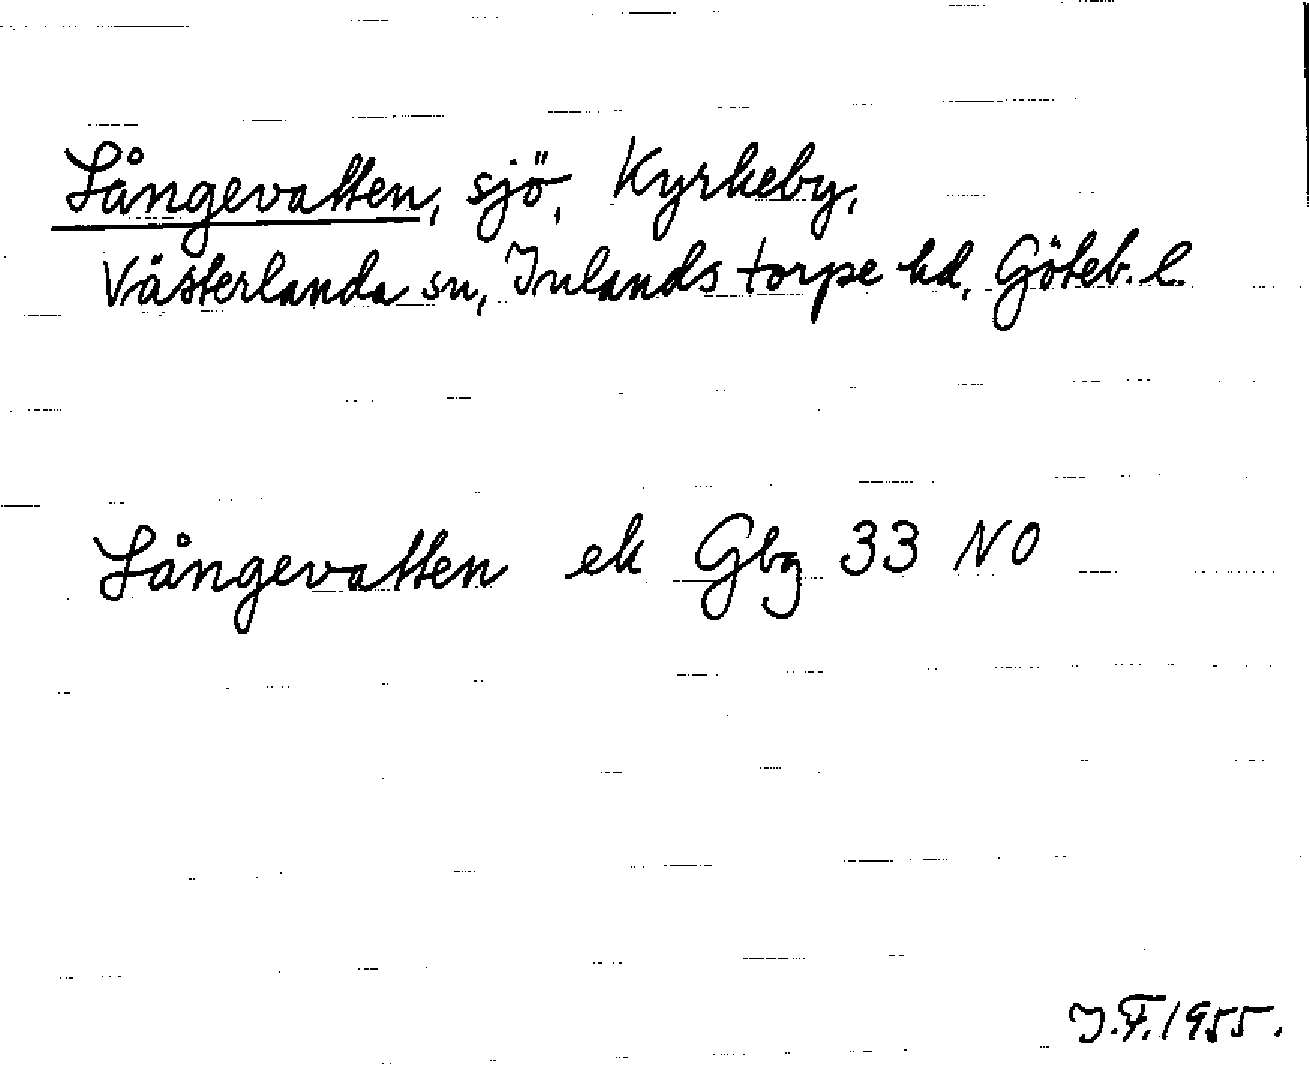 Långevatten, sjö, Kyrkeby,
Västerlanda sn, Inlands torpe hd, Göteb. l.
Långevatten ek Gbg 33 NO
J.F. 1955.